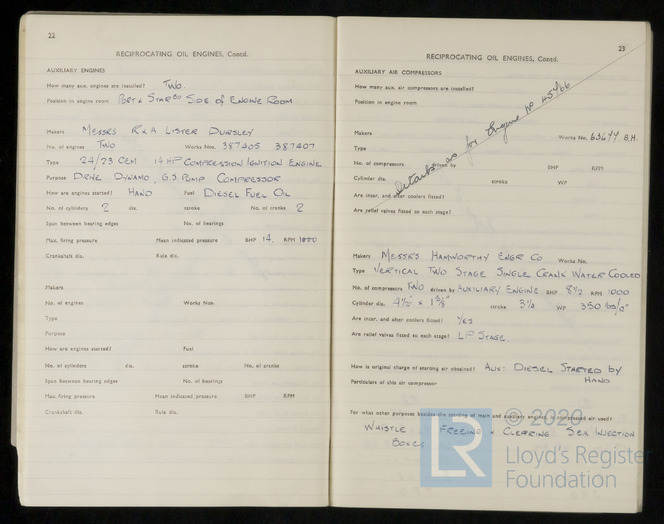 22
RECIPROCATING OIL ENGINES, Contd.
AUXILIARY ENGINES
How many aux. engines are installed? TWO.
Position in engine room PORT & STARBD SIDE OF ENGINE ROOM
Makers MESSRS R & A LISTER DURSLEY
No. of engines TWO Works No. 387405 387407
Type 24/23 CEM 14 HP COMPRESSION IGNITION ENGINE
Purpose DRIVE DYNAMO, G.S. PUMP COMPRESSOR
How are engines started? HAND Fuel DIESEL FUEL OIL
No. of cylinders 2 dia. stroke No. of cranks 2
Span between bearing edges No. of bearings
Max. firing pressure Mean indicated pressure BHP 14. RPM 1000
Crankshaft dia. Rule dia.
Makers
No. of engines Works Nos.
Type
Purpose
How are engines started? Fuel
No. of cylinders dia. stroke No. of cranks
Span between bearing edges No. of bearings
Max. firing pressure Mean indicated pressure BHP RPM
Crankshaft dia. Rule dia.
23
RECIPROCATING OIL ENGINES, Contd.
AUXILIARY AIR COMPRESSORS
How many aux. air compressors are installed?
Position in engine room
Details as for Engine No
Makers Works No. 63677 B.H.
Type
No. of compressors driven by BHP RPM
Cylinder dia. stroke WP
Are inter. and after coolers fitted?
Are relief valves fitted to each stage?
Makers MESSRS HAMWORTHY ENGR CO Works No.
Type VERTICAL TWO STAGE SINGLE CRANK WATER COOLED
No. of compressors TWO driven by AUXILIARY ENGINE BHP 8½ RPM 1000
Cylinder dia. stroke 3¼ WP 350
Are inter. and after coolers fitted? YES
Are relief valves fitted to each stage? LP STAGE.
How is original charge of starting air obtained? AUX: DIESEL STARTED BY
HAND
Particulars of this air compressor
For what other purposes besides the starting of main and auxiliary engines is compressed air used?
WHISTLE FREEING & CLEARING SEA INJECTION
BOXES
© 2020
LR
Lloyd's Register
Foundation